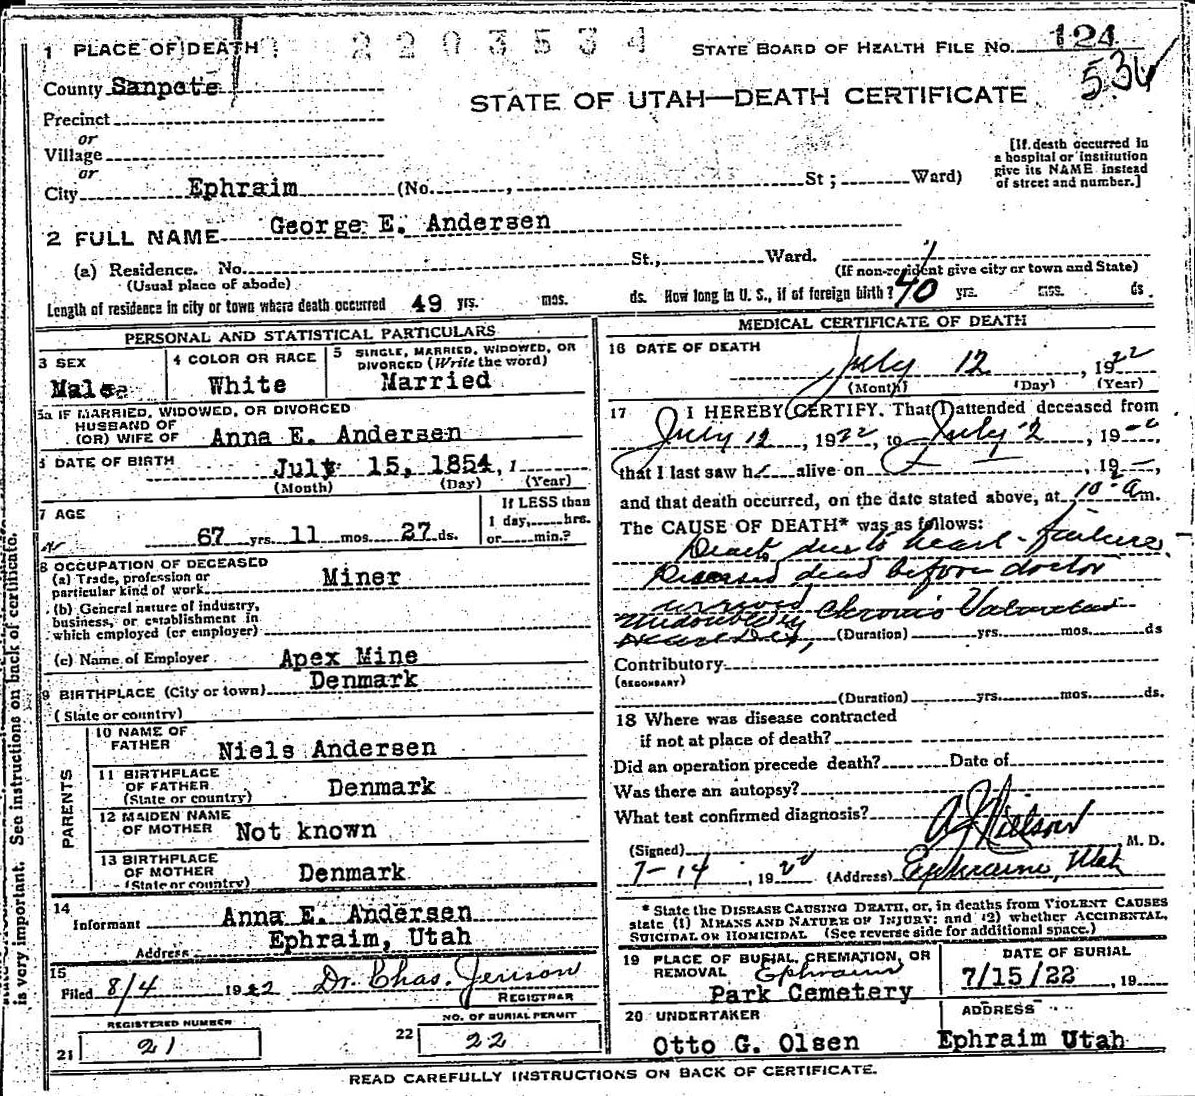 1 PLACE OF DEATH 2203534 STATE BOARD OF HEALTH FILE NO. 124
County Sanpete 536
STATE OF UTAH—DEATH CERTIFICATE
Precinct
or
Village
or
City Ephraim (No. , St; Ward)
[If death occurred in
a hospital or institution
give its NAME instead
of street and number.]
2 FULL NAME George E. Andersen
(a) Residence. No. St., Ward.
(Usual place of abode) (If non-resident give city or town and State)
Length of residence in city or town where death occurred 49 yrs. mos. ds. How long in U. S., if of foreign birth? 40 yrs. mos. ds
PERSONAL AND STATISTICAL PARTICULARS
3 SEX
Male
4 COLOR OR RACE
White
5 SINGLE, MARRIED, WIDOWED, OR
DIVORCED (Write the word)
Married
5a IF MARRIED, WIDOWED, OR DIVORCED
HUSBAND OF
(OR) WIFE OF Anna E. Andersen
6 DATE OF BIRTH July 15, 1854, 1
(Month) (Day) (Year)
7 AGE
67 yrs. 11 mos. 27 ds.
If LESS than
1 day, hrs.
or min.?
8 OCCUPATION OF DECEASED
(a) Trade, profession or
particular kind of work Miner
(b) General nature of industry,
business, or establishment in
which employed (or employer)
(c) Name of Employer Apex Mine
9 BIRTHPLACE (City or town) Denmark
(State or country)
PARENTS
10 NAME OF
FATHER Niels Andersen
11 BIRTHPLACE
OF FATHER
(State or country) Denmark
12 MAIDEN NAME
OF MOTHER Not known
13 BIRTHPLACE
OF MOTHER
(State or country) Denmark
14
Informant Anna E. Andersen
Address Ephraim, Utah
15
Filed 8/4 1922 Dr. Chas. Jenson
REGISTRAR
REGISTERED NUMBER
21 21
NO. OF BURIAL PERMIT
22 22
MEDICAL CERTIFICATE OF DEATH
16 DATE OF DEATH
July 12, 1922
(Month) (Day) (Year)
17 I HEREBY CERTIFY. That I attended deceased from
July 12, 1922, to July 12, 19
that I last saw h alive on , 19 ,
and that death occurred, on the date stated above, at 10 a m.
The CAUSE OF DEATH* was as follows:
Death due to heart-failure
Deceased dead before doctor
arrived
undoubtedly Chronic Valvular
Heart Dis, (Duration) yrs. mos. ds
Contributory
(SECONDARY)
(Duration) yrs. mos. ds.
18 Where was disease contracted
if not at place of death?
Did an operation precede death? Date of
Was there an autopsy?
What test confirmed diagnosis?
(Signed) A J Nielson M. D.
7-14, 1922 (Address) Ephraim, Utah
* State the DISEASE CAUSING DEATH, or, in deaths from VIOLENT CAUSES
state (1) MEANS AND NATURE OF INJURY: and (2) whether ACCIDENTAL,
SUICIDAL OR HOMICIDAL (See reverse side for additional space.)
19 PLACE OF BURIAL, CREMATION, OR
REMOVAL Ephraim
Park Cemetery
DATE OF BURIAL
7/15/22, 19
20 UNDERTAKER
Otto G. Olsen
ADDRESS
Ephraim Utah
READ CAREFULLY INSTRUCTIONS ON BACK OF CERTIFICATE.
is very important. See instructions on back of certificate.